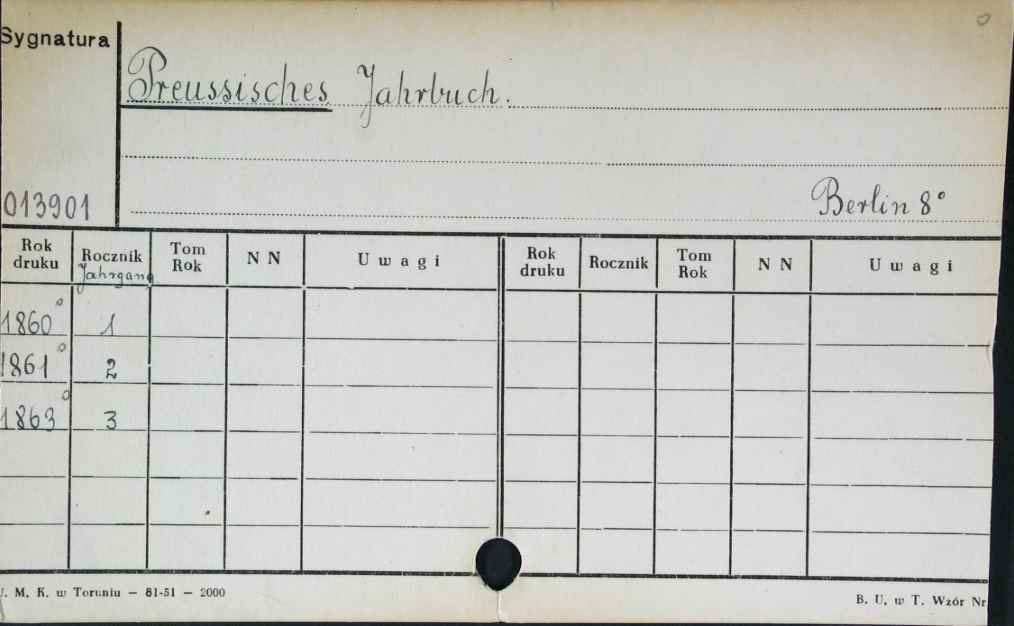 Sygnatura
Preussisches Jahrbuch.
013901
Berlin 8°
Rok druku Rocznik Jahrgang Tom Rok N N Uwagi Rok druku Rocznik Tom Rok N N Uwagi
1860° 1
1861° 2
1863° 3
U. M. K. w Toruniu — 81-51 — 2000
B. U. w T. Wzór Nr